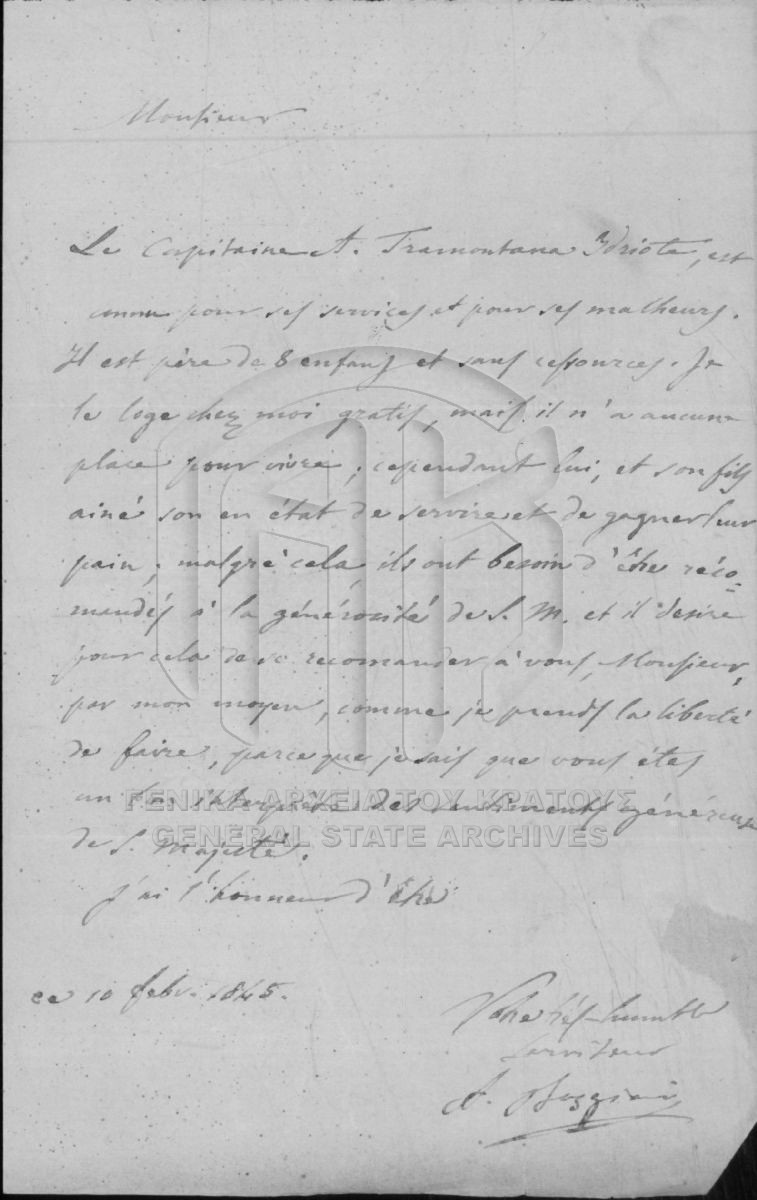 Monsieur
Le Capitaine A. Tramontana Idriote, est
connu pour ses services et pour ses malheurs.
Il est père de 8 enfans et sans ressources. Je
le loge chez moi gratis, mais il n'a aucune
place pour vivre; cependant lui, et son fils
ainé son en état de servire et de gagner leur
pain; malgré cela, ils ont besoin d'être réco=
mandés à la générosité de S. M. et il desire
pour cela de se recomander à vous, Monsieur,
par mon moyen, comme je prends la liberté
de faire, parce que je sais que vous étes
un bon interprète des sentiments généreux
de S. Majesté.
J'ai l'honneur d'être
ce 10 febr. 1845.
Votre trés-humble
serviteur
A.
ΓΕΝΙΚΑ ΑΡΧΕΙΑ ΤΟΥ ΚΡΑΤΟΥΣ
GENERAL STATE ARCHIVES